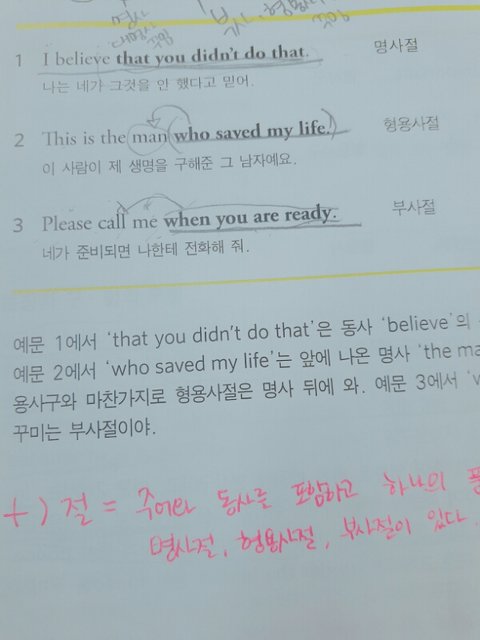 명사
대명사
꾸밈
부사, 형용사
꾸밈
1 I believe that you didn't do that. 명사절
나는 네가 그것을 안 했다고 믿어.
2 This is the man who saved my life. 형용사절
이 사람이 제 생명을 구해준 그 남자예요.
3 Please call me when you are ready. 부사절
네가 준비되면 나한테 전화해 줘.
예문 1에서 'that you didn't do that'은 동사 'believe'의
예문 2에서 'who saved my life'는 앞에 나온 명사 'the ma
용사구와 마찬가지로 형용사절은 명사 뒤에 와. 예문 3에서 'w
꾸미는 부사절이야.
+) 절 = 주어와 동사를 포함하고 하나의 품
명사절, 형용사절, 부사절이 있다.